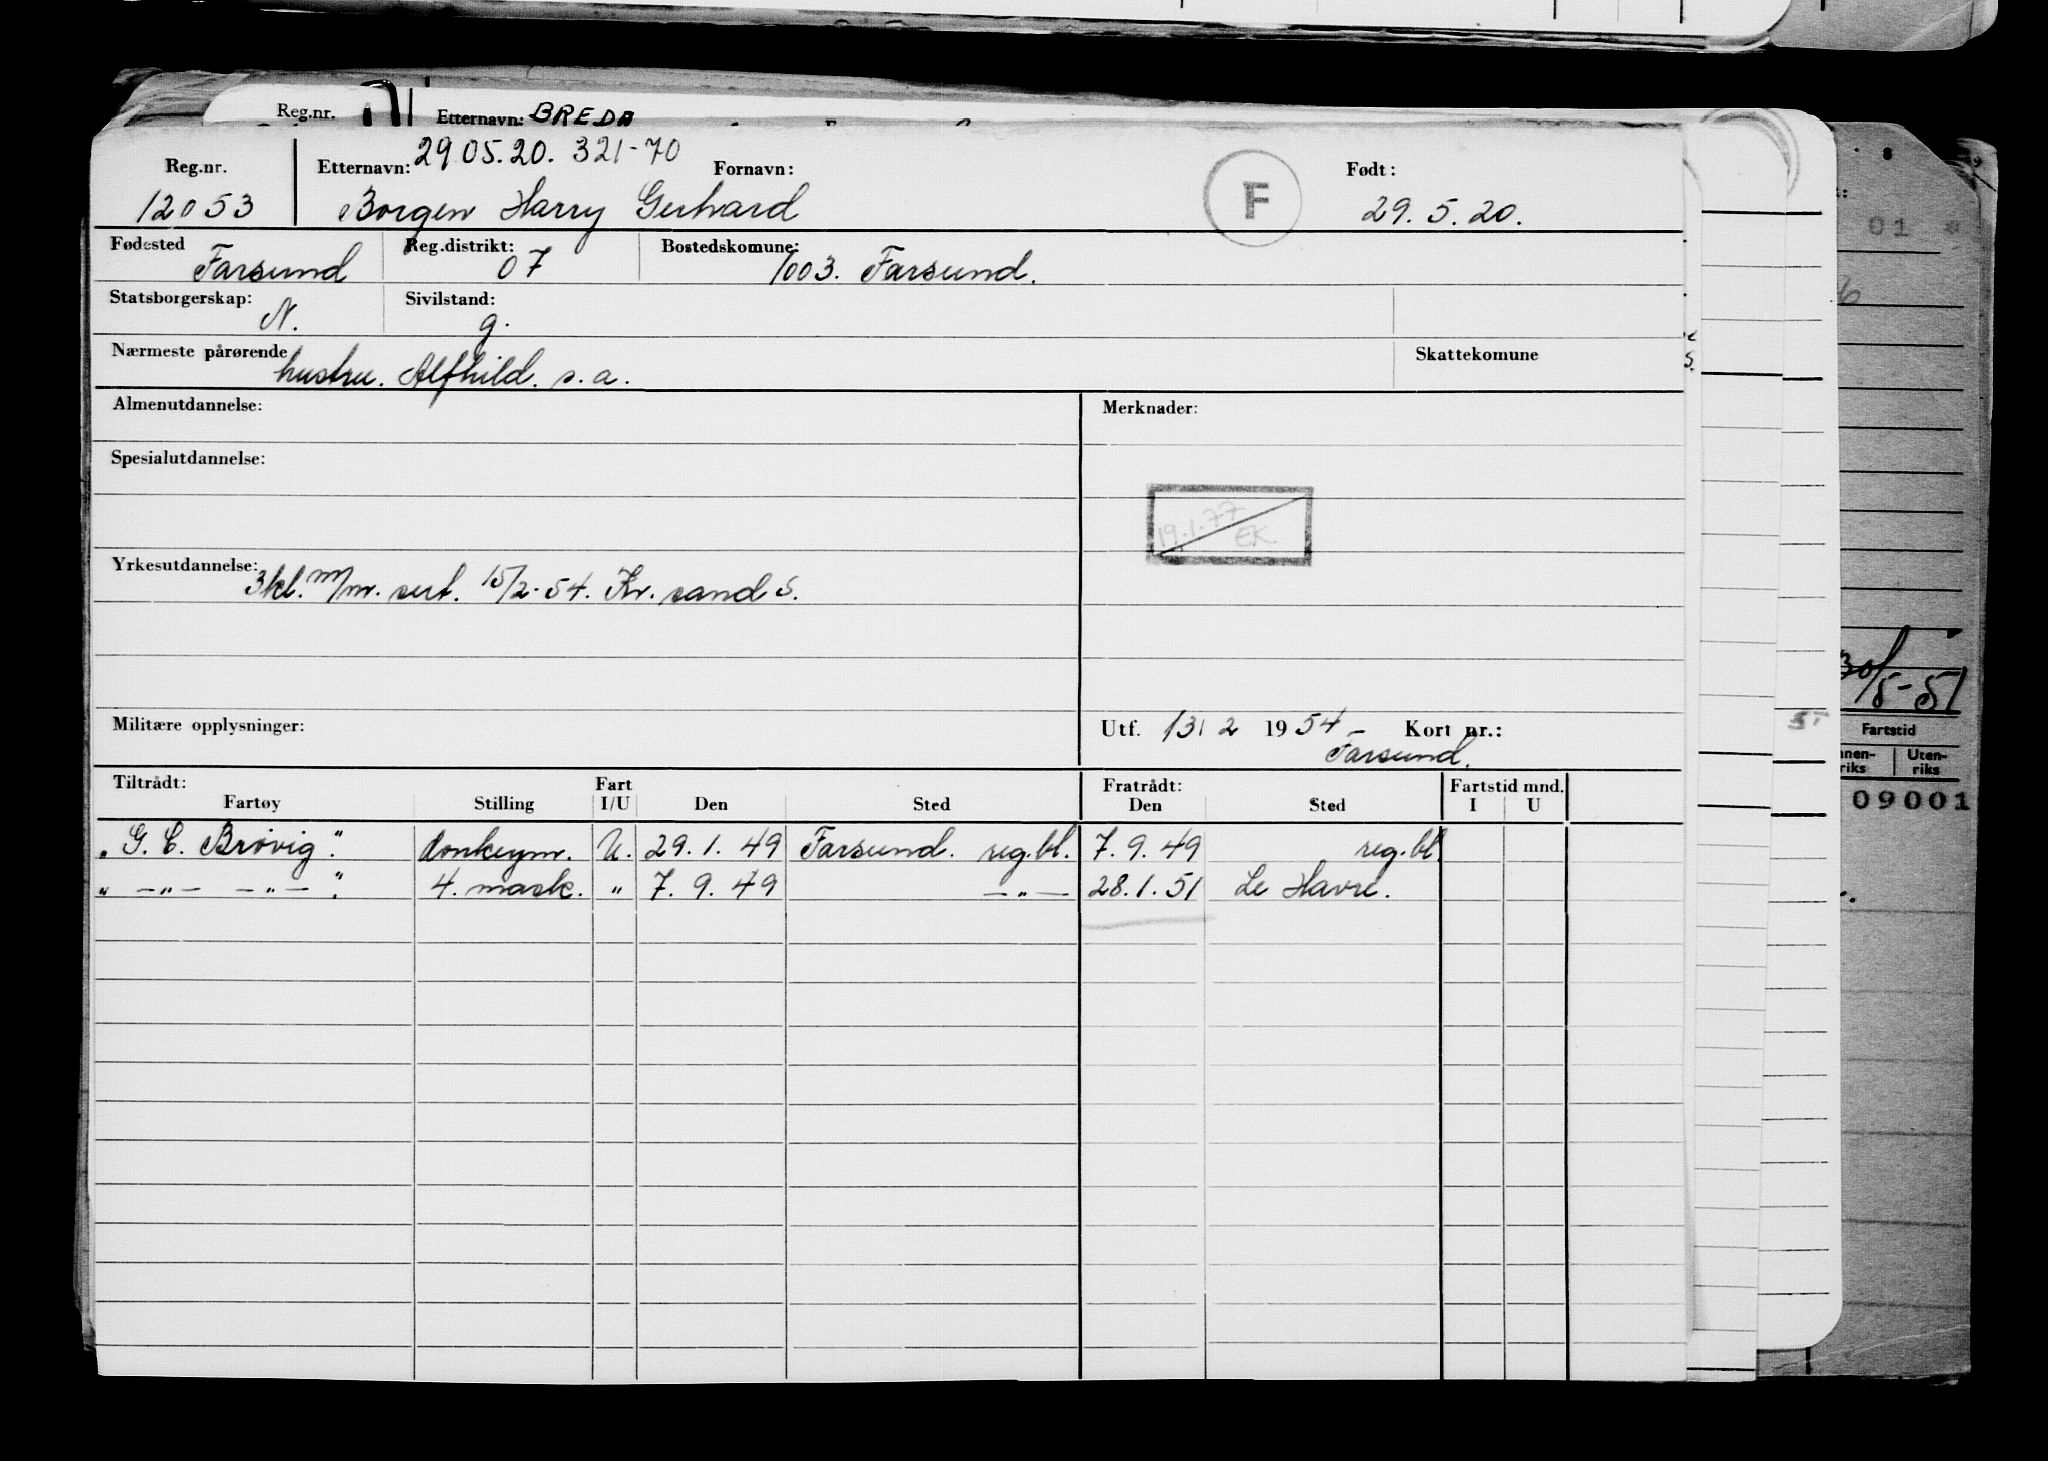 Reg.nr.
Etternavn: BREDA
Reg.nr. Etternavn: 29 05.20. 321-70 Fornavn: F Født:
12053 Borgen Harry Gerhard 29. 5. 20.
Fødested Reg.distrikt: Bostedskomune:
Farsund 07 1003. Farsund.
Statsborgerskap: Sivilstand:
N. g.
Nærmeste pårørende Skattekomune
hustru. Alfhild. s.a.
Almenutdannelse: Merknader:
Spesialutdannelse:
19.1.77
EK
Yrkesutdannelse:
3kl. m/m. sert. 15/2-54. Kr. sand S.
Militære opplysninger: Utf. 13/2 1954 Kort nr.:
Farsund.
Tiltrådt: Fart Fratrådt: Fartstid mnd.
Fartøy Stilling I/U Den Sted Den Sted I U
„G. C. Brøvig." donkeym. U. 29. 1. 49 Farsund. reg.bl. 7. 9. 49 reg.bl.
„ —„— —„— " 4. mask. „ 7. 9. 49 —„— 28. 1. 51 Le Havre.
01
30/5-51
Fartstid
Uten-
riks riks
09001